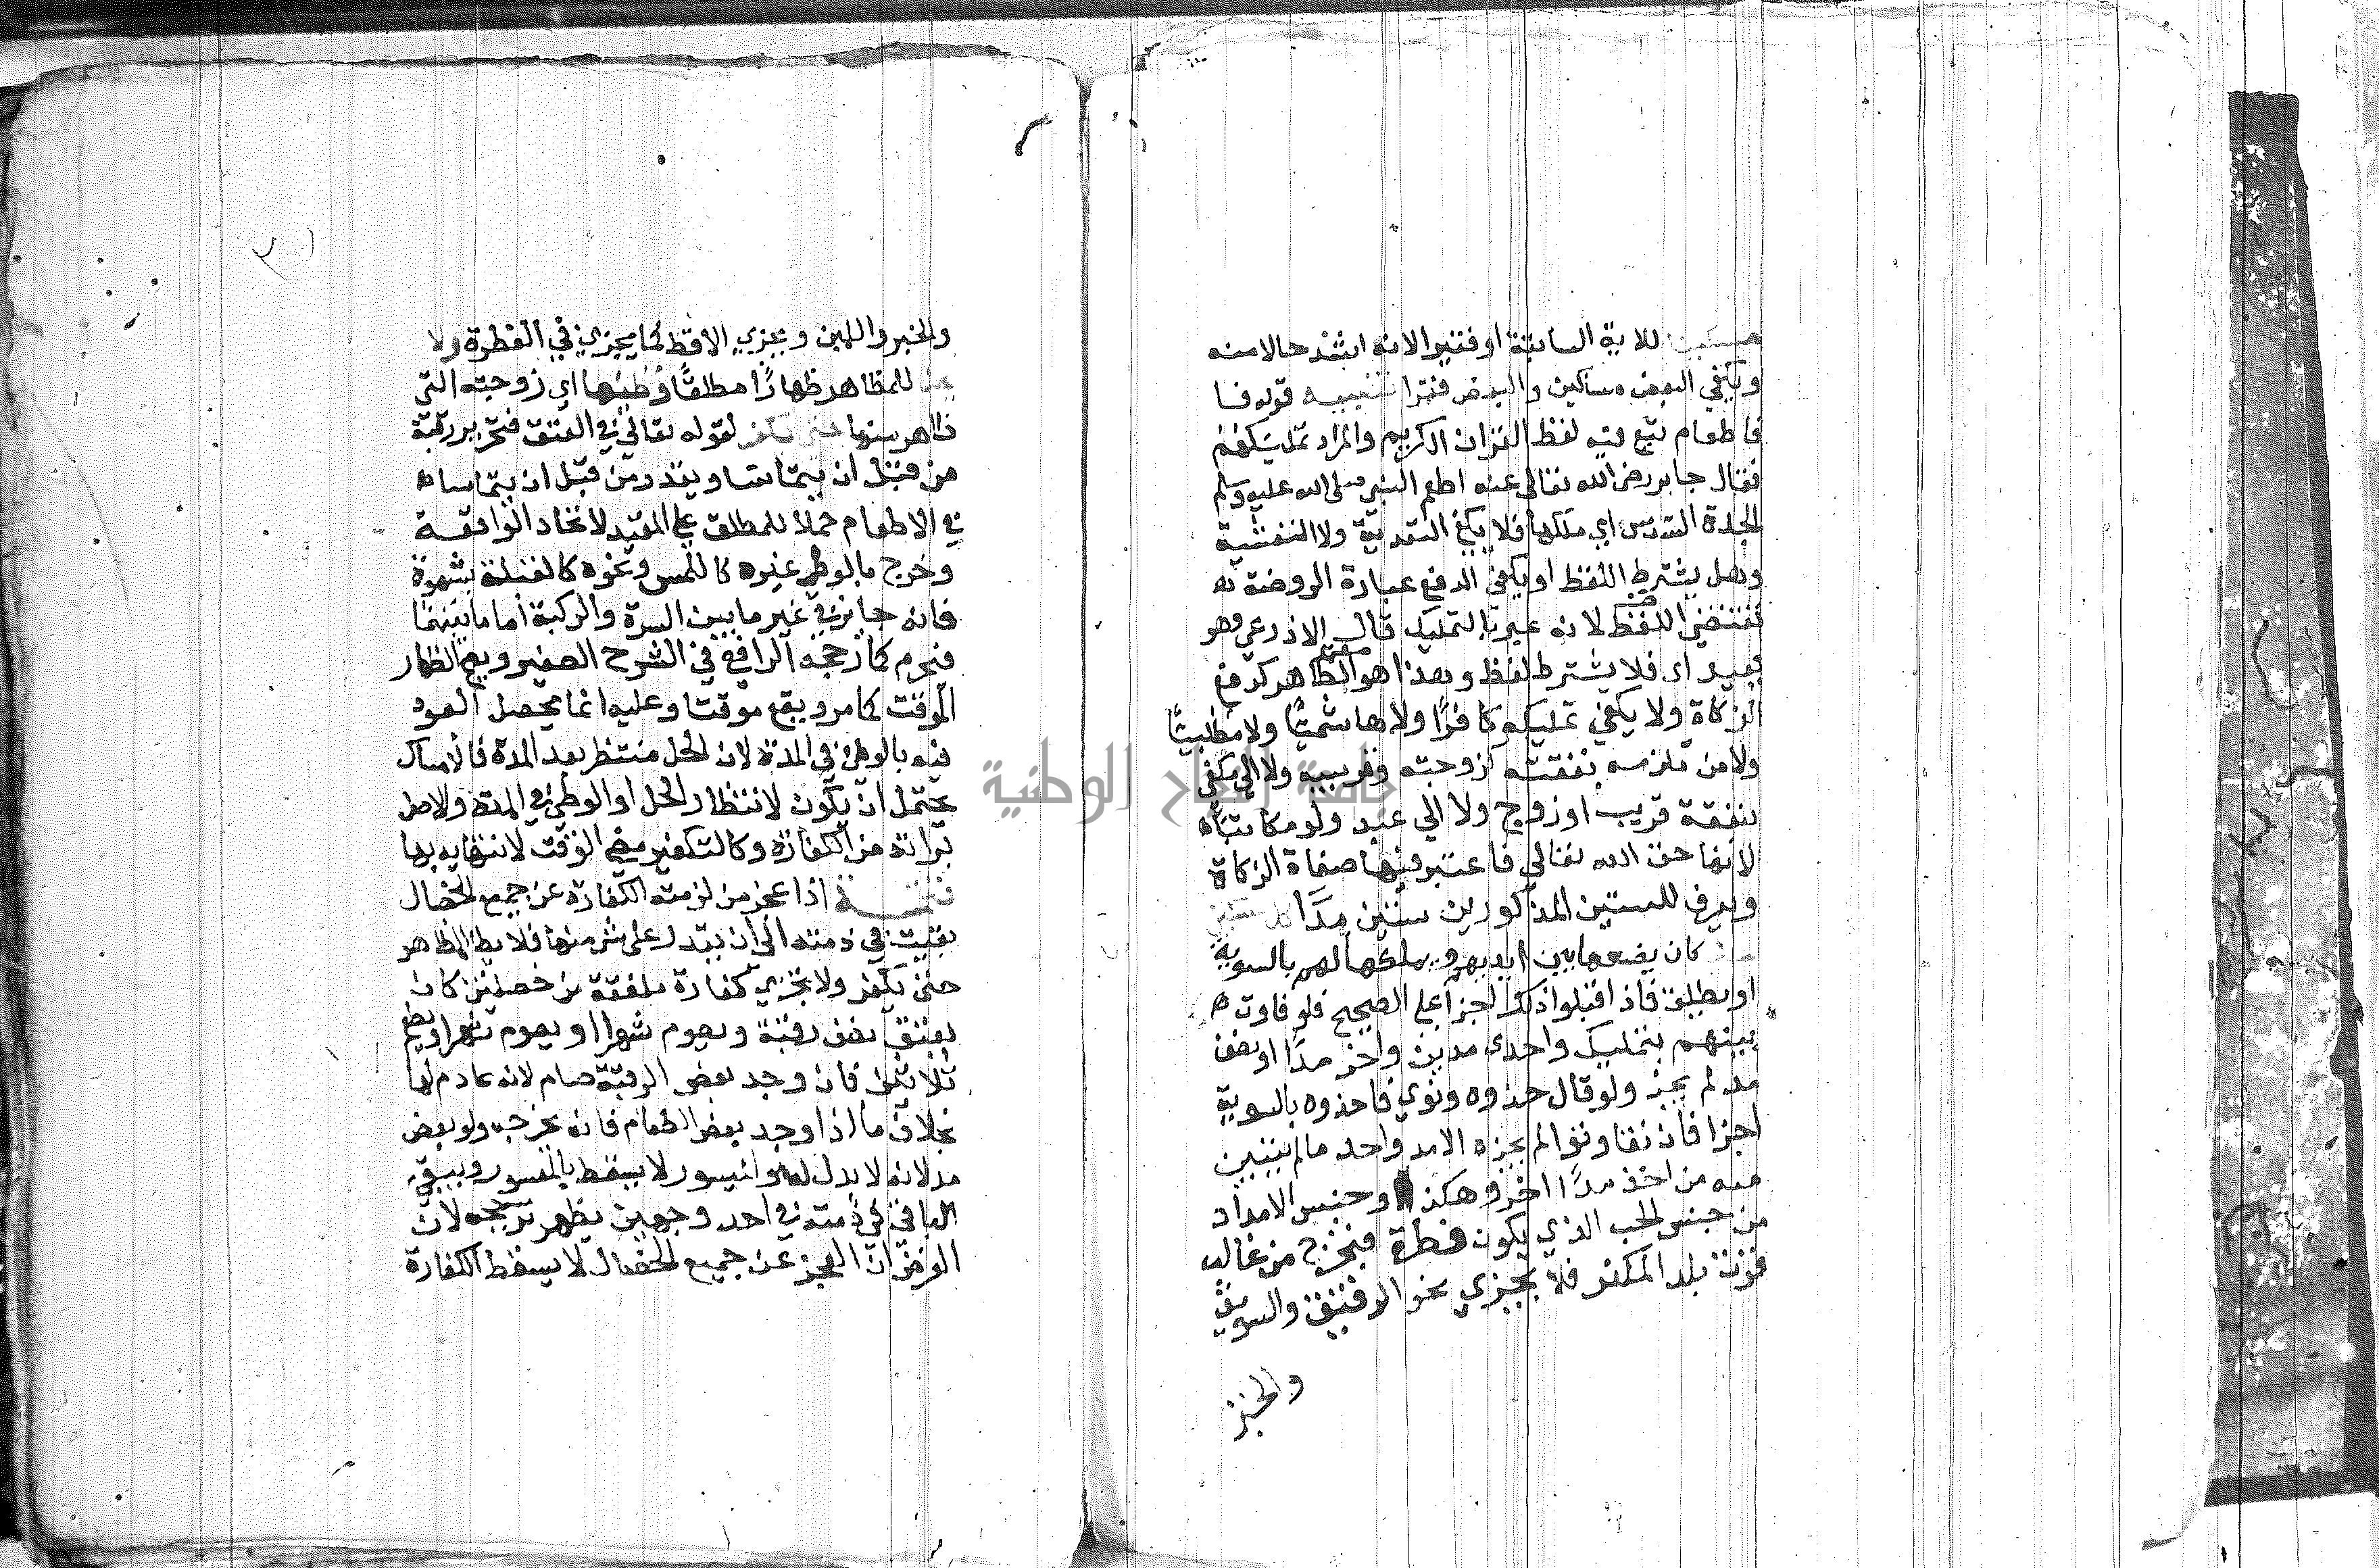 مسكين للاية السابقة او فقير لانه اشد حالا منه
ويكفي البعض مساكين والبعض فقرا تنبيه قوله فا
فاطعام تبع فيه لفظ القران الكريم والمراد تمليكهم
فقال جابر رضي الله تعالى عنه اطعم النبي صلى الله عليه وسلم
الجدة السدس اي ملكها فلا يكفي التغدية ولا التعشية
وهل يشترط اللفظ او يكفي الدفع عبارة الروضة
تقتضي اللفظ لانه عبر بالتمليك قال الاذرعي وهو
بعيد اي فلا يشترط لفظ وهذا هو الظاهر كدفع
الزكاة ولا يكفي تمليكه كافرًا ولا هاشميًا ولا مطلبيًا
ولا من تلزمه نفقته كزوجته وقريبه ولا الي مكفي
بنفقة قريب او زوج ولا الي عبد ولو مكاتبا
لانها حق الله تعالي فاعتبر فيها صفاة الزكاة
ويصرف للستين المذكورين ستين مدًا
كان يضعها بين ايديهم ويملكها لهم بالسوية
او يطلق فاذا قبلوا ذلك اجزا علي الصحيح فلو فاوت
بينهم بتمليك واحد مدين واخر مدًا او نصف
مد لم يجز ولو قال خذوه ونوي فاخذوه بالسوية
اجزا فان تفاوتوا لم يجزه الا مد واحد مالم يتبين
معه من اخذ مدًا اخر وهكذا وجنس الامداد
من جنس الحب الذي يكون فطرة فيخرج من غالب
قوت بلد المكفر فلا يجزي نحو الدقيق والسويق
والخبز
والخبز واللبن ويجزي الاقط كما يجزي في الفطرة ولا
للمظاهر ظهارًا مطلقًا وطئها اي زوجته التي
ظاهر منها حتى يكفر لقوله تعالي في العتق فتحرير رقبة
من قبل ان يتماسا ويقدر من قبل ان يتماسا
في الاطعام حملا للمطلق علي المقيد لاتحاد الواقعة
وخرج بالوطي غيره كاللمس ونحوه كالقبلة بشهوة
فانه جايز في غير ما بين السرة والركبة اما ما بينهما
فيحرم كما رجحه الرافعي في الشرح الصغير ويصح الظهار
الموقت كما مر ويقع موقتا وعليه انما يحصل العود
فيه بالوطئ في المدة لان الحل منتظر بعد المدة فالامساك
يحتمل ان يكون لانتظار الحل او الوطئ في المدة والاصل
براته من الكفارة وكالتكفير مضي الوقت لانتهايه بها
تتمة اذا عجز من لزمته الكفارة عن جميع الخصال
بقيت في ذمته الي ان يقدر على شئ منها فلا يطا المظاهر
حتى يكفر ولا تجزي كفارة ملفقة من خصلتين كان
يعتق نصف رقبة ويصوم شهرا او يصوم شهرا ويطعم
ثلاثين فان وجد بعض الرقبة صام لانه عادم لها
بخلاف ما اذا وجد بعض الطعام فانه يخرجه ولو بعض
مد لانه لا بدل له والميسور لا يسقط بالمعسور ويبقي
الباقي في ذمته في احد وجهين يظهر ترجيحه لان
الفرض ان العجز عن جميع الخصال لا يسقط الكفارة
جامعة النجاح الوطنية